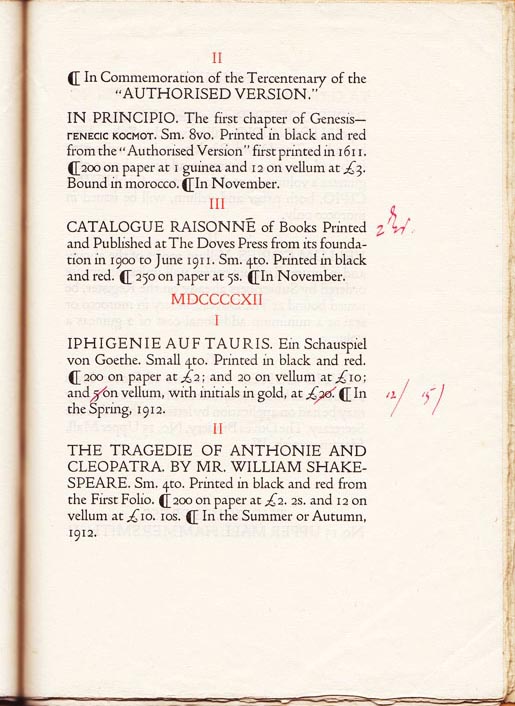 II
¶ In Commemoration of the Tercentenary of the
“AUTHORISED VERSION.”
IN PRINCIPIO. The first chapter of Genesis—
ΓΕΝΕCΙC ΚΟCΜΟΤ. Sm. 8vo. Printed in black and red
from the “Authorised Version” first printed in 1611.
¶ 200 on paper at 1 guinea and 12 on vellum at £3.
Bound in morocco. ¶ In November.
III
CATALOGUE RAISONNÉ of Books Printed
and Published at The Doves Press from its founda-
tion in 1900 to June 1911. Sm. 4to. Printed in black
and red. ¶ 250 on paper at 5s. ¶ In November.
MDCCCCXII
I
IPHIGENIE AUF TAURIS. Ein Schauspiel
von Goethe. Small 4to. Printed in black and red.
¶ 200 on paper at £2; and 20 on vellum at £10;
and 5 on vellum, with initials in gold, at £20. ¶ In
the Spring, 1912.
12/ 15/
II
THE TRAGEDIE OF ANTHONIE AND
CLEOPATRA. BY MR. WILLIAM SHAKE-
SPEARE. Sm. 4to. Printed in black and red from
the First Folio. ¶ 200 on paper at £2. 2s. and 12 on
vellum at £10. 10s. ¶ In the Summer or Autumn,
1912.